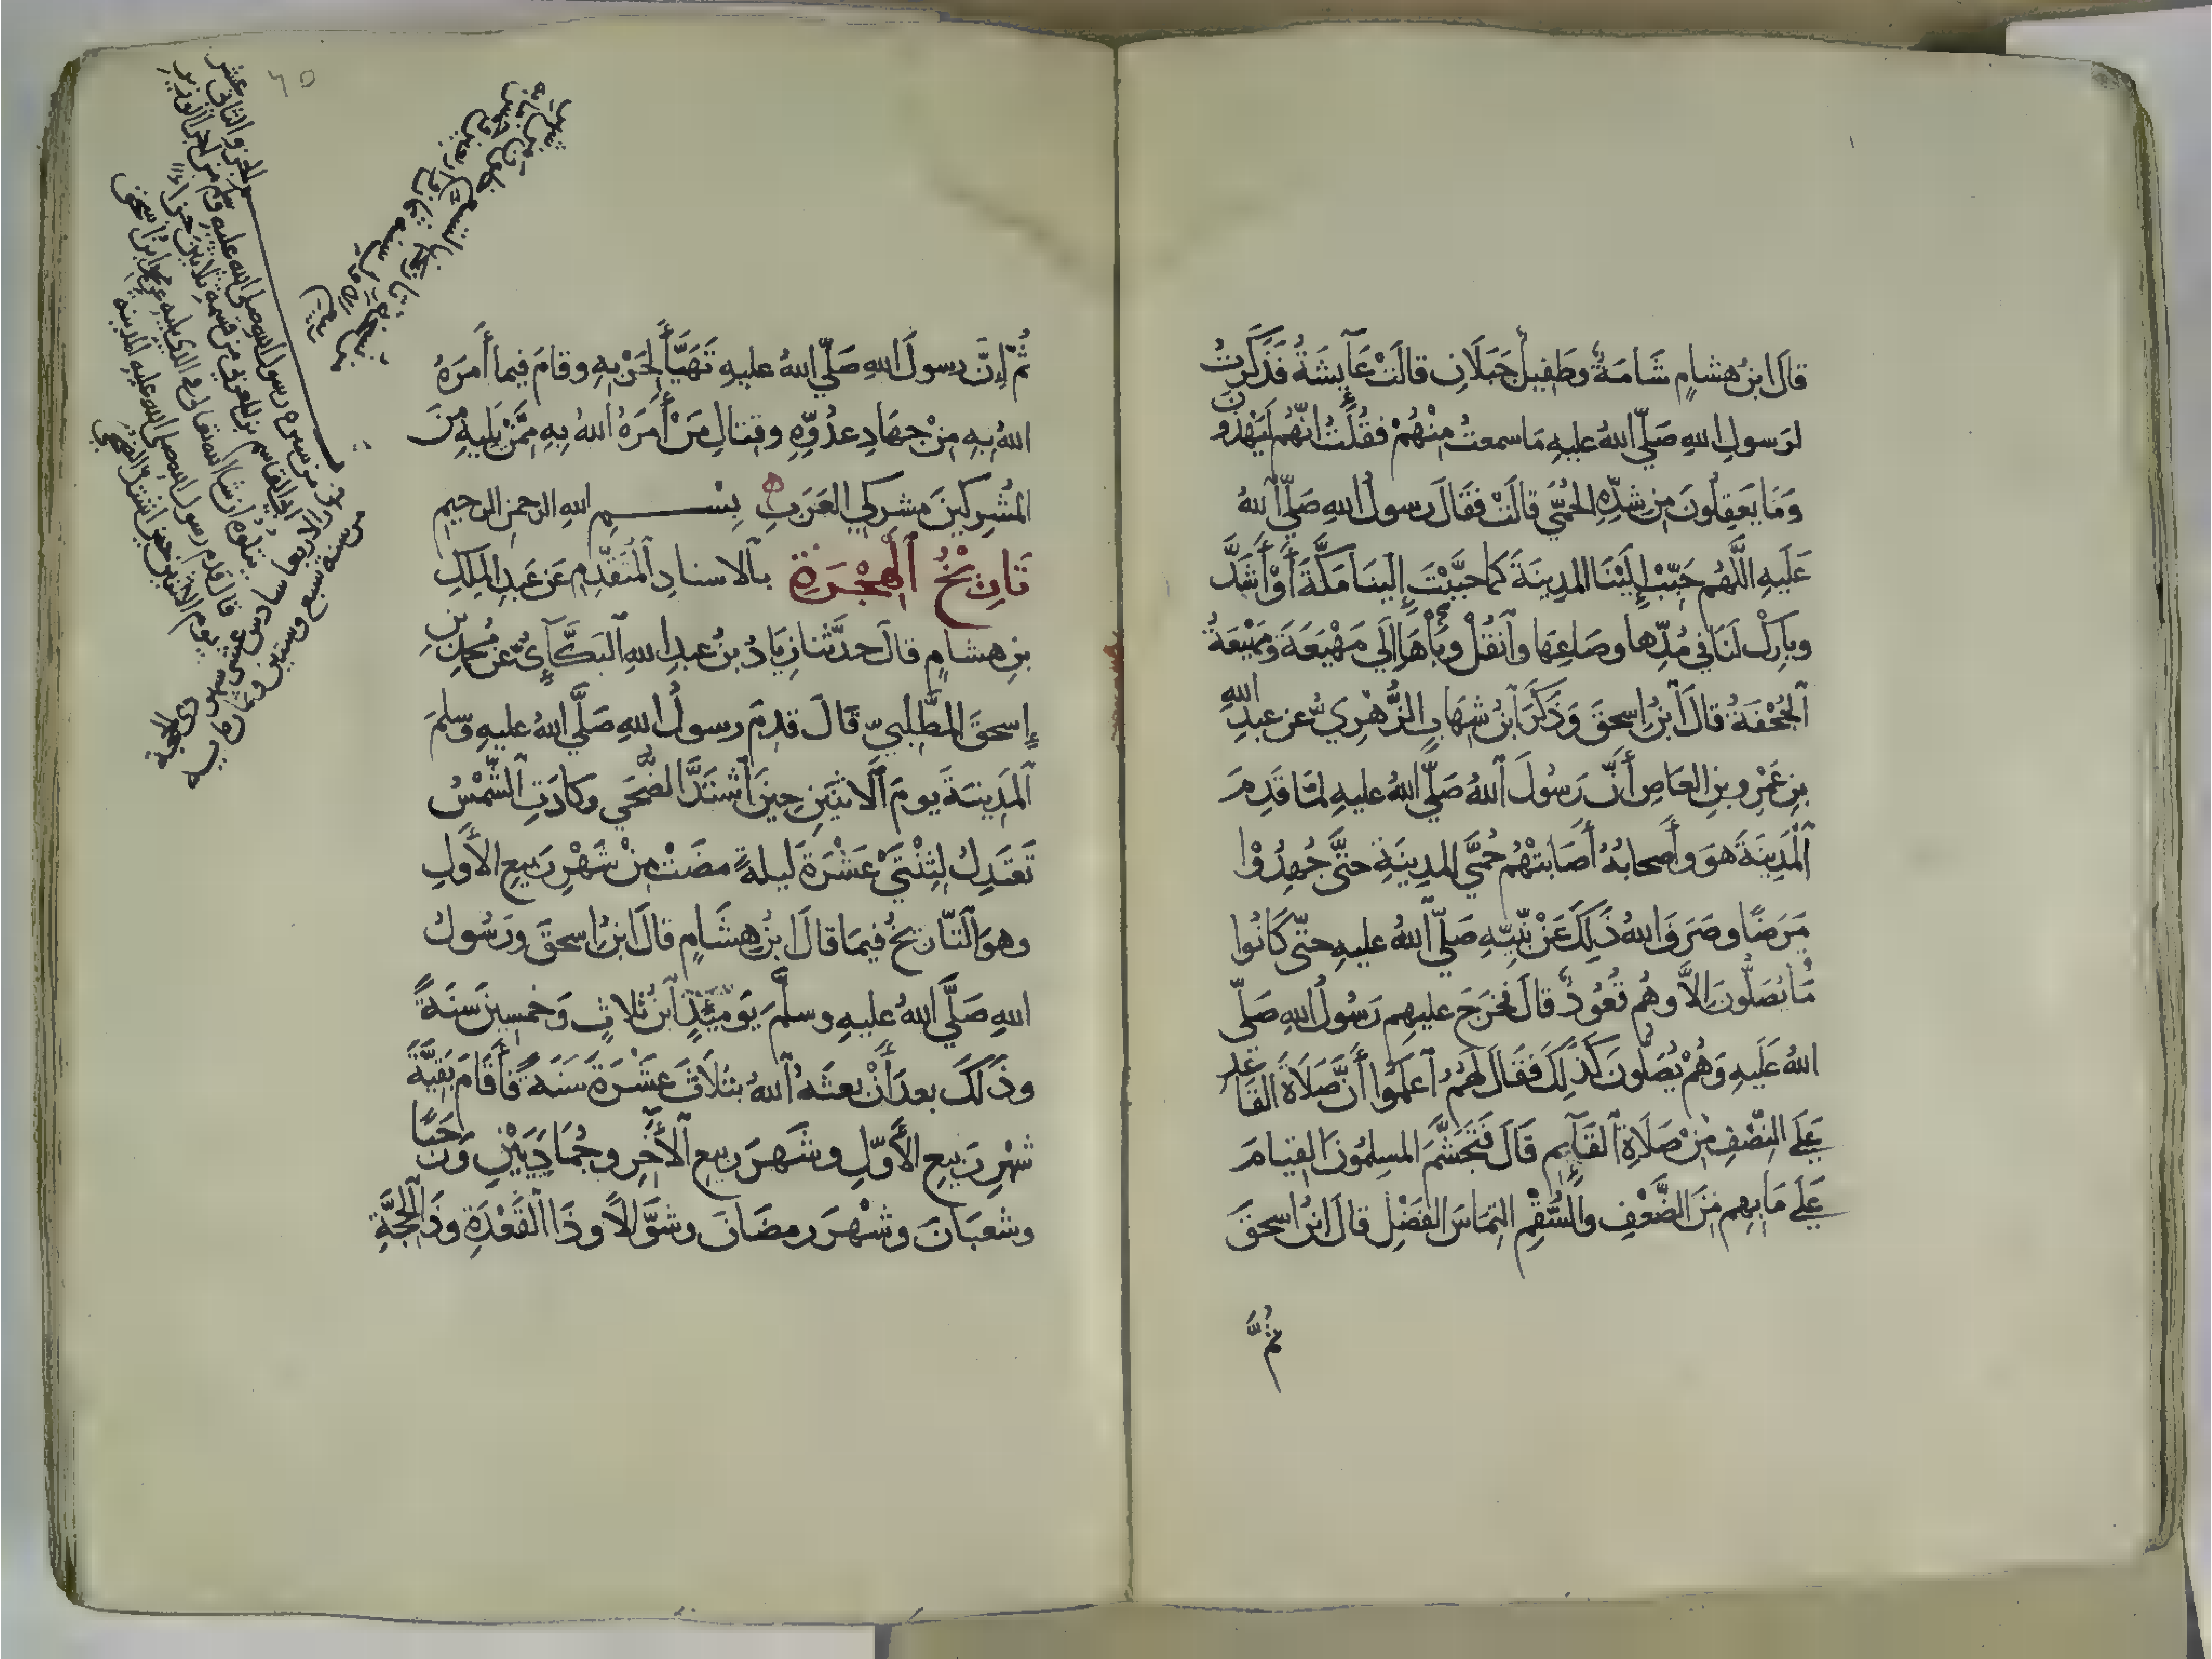 قال ابن هشام شَامَةٌ وطَفِيلٌ جَبَلَانِ قالَتْ عَآئِشَةُ فَذَكَرْتُ
لرَسولِ اللهِ صَلَّى اللهُ عليهِ مَا سمعتُ مِنْهُمْ فقُلْتُ إنّهُم لَيَهْذُونَ
وَمَا يَعقِلُونَ مِن شِدَّةِ الحُمَّى قالَتْ فقَالَ رسولُ اللهِ صَلَّى اللهُ
عَلَيهِ اللَّهُم حَبِّبْ إِلَيْنَا المدِينَةَ كما حبَّبْتَ إلينَا مَكَّةَ أَوْ أَشَدَّ
وبارِكْ لنَا في مُدِّها وصَاعِهَا وٱنْقُلْ وبَاءَهَا إلَى مَهْيَعَةَ ومَهْيَعَةُ
ٱلجُحْفَةُ قالَ ٱبنُ إسحقَ وَذَكَرَ ٱبنُ شهَابٍ الزُّهْرِيُّ عن عبدِ اللهِ
بنِ عَمْرِو بنِ العَاصِ أَنَّ رَسُولَ ٱللهِ صَلَّى اللهُ عليهِ لمَّا قَدِمَ
ٱلْمَدِينَةَ هوَ وأَصحابُهُ أَصَابتْهُم حُمَّى المدِينَةِ حتَّى جُهِدُوْا
مَرَضًا وصَرَفَ اللهُ ذَلِكَ عَنْ نَبِيِّهِ صَلَّى ٱللهُ عليهِ حتّى كَانُوا
مَا يُصَلُّونَ إلاَّ وهُم قُعُودٌ قالَ فخَرَجَ عليهِم رَسُولُ اللهِ صَلَّى
اللهُ عَلَيهِ وَهُمْ يُصَلُّونَ كَذَلِكَ فقَالَ لهُمُ ٱعلَمُوا أَنَّ صَلَاةَ القَاعد
عَلَى النِّصْفِ مِنْ صَلَاةِ ٱلقَآئِمِ قَالَ فَتَجَشَّمَ المسلِمُونَ القِيامَ
عَلَى مَا بِهِم مِنَ الضَّعْفِ والسُّقْمِ التِمَاسَ الفَضْلِ قالَ ابنُ اسحقَ
ثُمَّ
٦٥
ثُمّ إِنَّ رسولَ اللهِ صَلَّى اللهُ عليهِ تَهَيَّأَ لِحَرْبِهِ وقامَ فيما أَمَرَهُ
اللهُ بِهِ مِنْ جهَادِ عدُوِّهِ وقِتالِ مَنْ أَمَرَهُ اللهُ بِهِ مِمَّنْ يَلِيهِ مِنَ
المُشرِكينَ مشركِي العَرَبِ بِسْمِ اللهِ الرحمنِ الرحيمِ
تَارِيْخُ ٱلْهِجْرَةِ بالاسنادِ ٱلمُتَقَدِّمِ عَن عَبدِ الملِكِ
بنِ هشامٍ قالَ حدَّثنا زِيَادُ بنُ عبدِ اللهِ ٱلبَكَّآئِيُّ عن محمدِ بنِ
إسحقَ المطَّلِبِيِّ قَالَ قدِمَ رسولُ اللهِ صَلَّى اللهُ عليهِ وسلمَ
ٱلمَدِينةَ يومَ ٱلاثنَينِ حِينَ ٱشتَدَّ الضُّحَى وكادَتِ ٱلشَّمْسُ
تَعتَدِلُ لِثِنْتَيْ عَشْرَةَ ليلةً مضَتْ مِنْ شَهْرِ رَبيعِ الأَوَّلِ
وهوَ ٱلتَّارِيخُ فيمَا قالَ ابنُ هِشَامٍ قالَ ابنُ إسحقَ ورَسُولُ
اللهِ صَلَّى اللهُ عليهِ وسلَّمَ يَومَئِذٍ ٱبنُ ثلاثٍ وَخمسِينَ سَنَةً
وذَلكَ بعدَ أَنْ بعثَهُ ٱللهُ بثَلَاثَ عَشْرَةَ سَنَةً فأَقَامَ بَقِيَّةَ
شهْرِ رَبيعِ الأَوّلِ وشَهرَ ربيعِ ٱلآخِرِ وجُمَادَيَيْنِ وَرَجَبًا
وشعبَانَ وشهْرَ رمضَانَ وشوَّالاً وذَا ٱلقَعْدَةِ وذَا ٱلحِجَّةِ
الجزء الثاني عشر
من سيره رسول الله صلى الله عليه
يتلوه ان شا الله تعالى في الذي يليه عن محمد ابن اسحق
قال قدم رسول الله صلى الله عليه المدينه
يوم الاثنين حين اشتد الضحى
يوم الاربعا سادس عشر شهر ذي الحجة
من سنة سبع وستين وثمان مايه